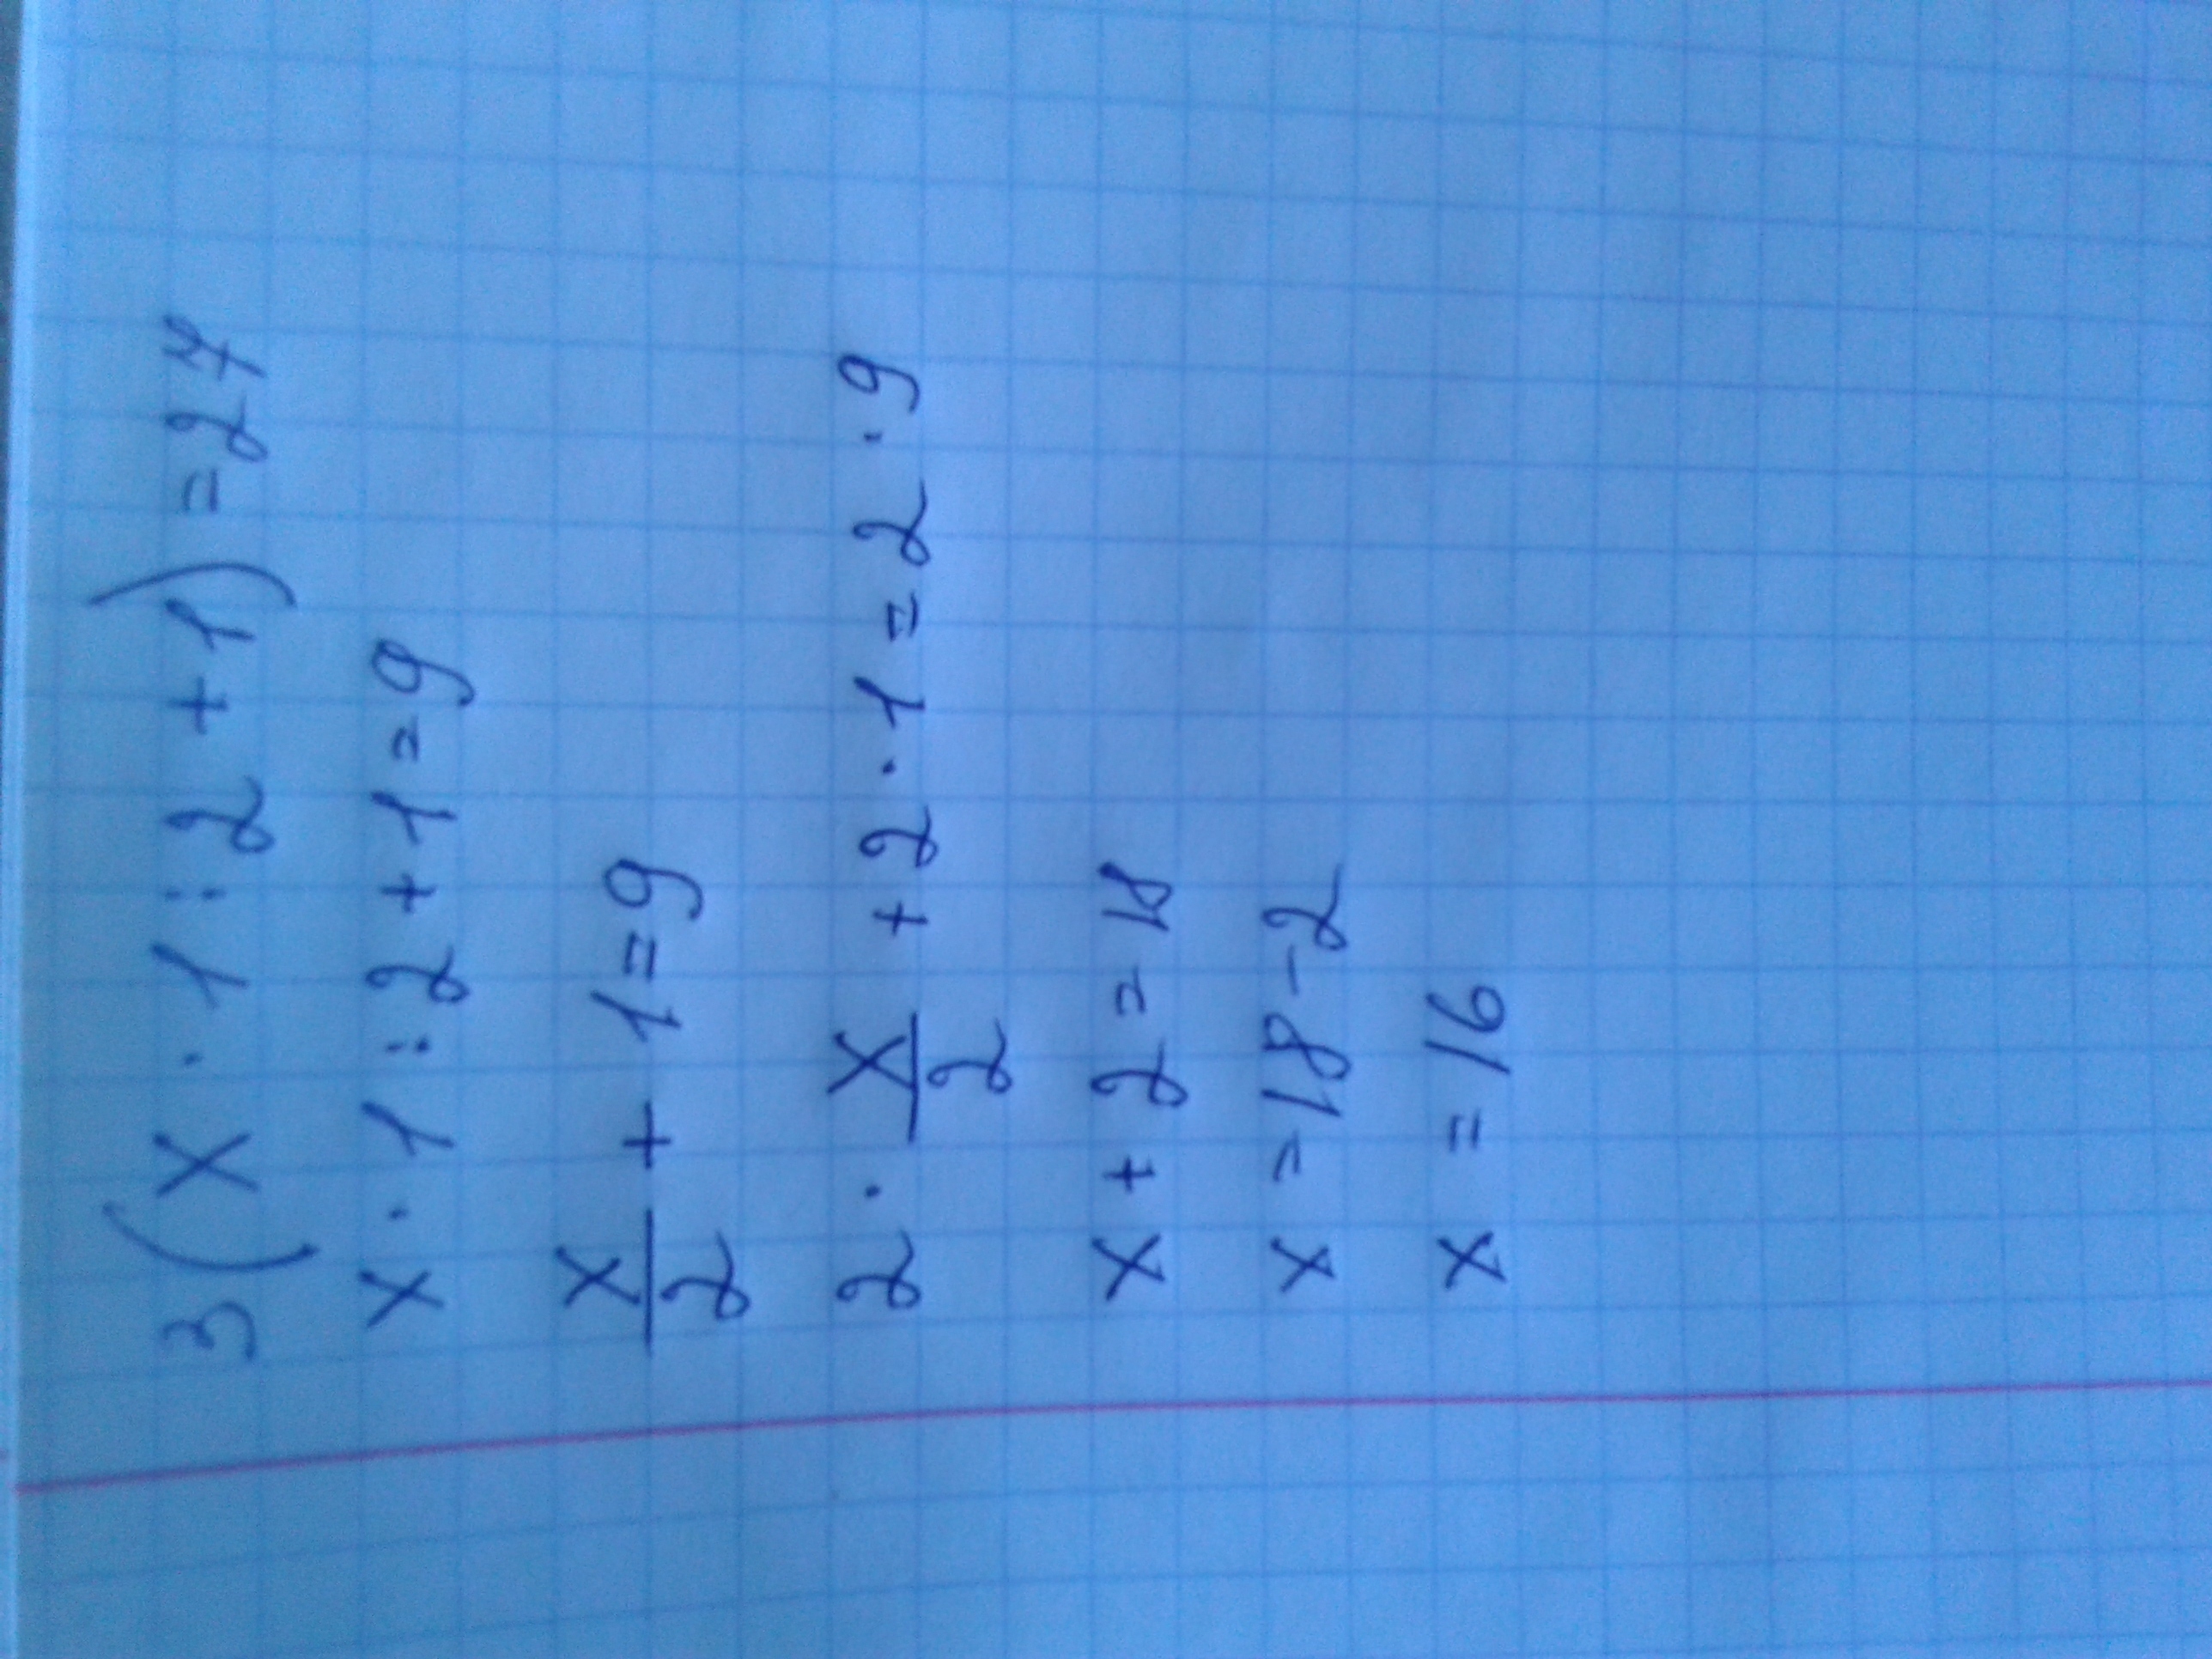 3(x · 1 : 2 + 1) = 27
x · 1 : 2 + 1 = 9
x/2 + 1 = 9
2 · x/2 + 2 · 1 = 2 · 9
x + 2 = 18
x = 18 - 2
x = 16